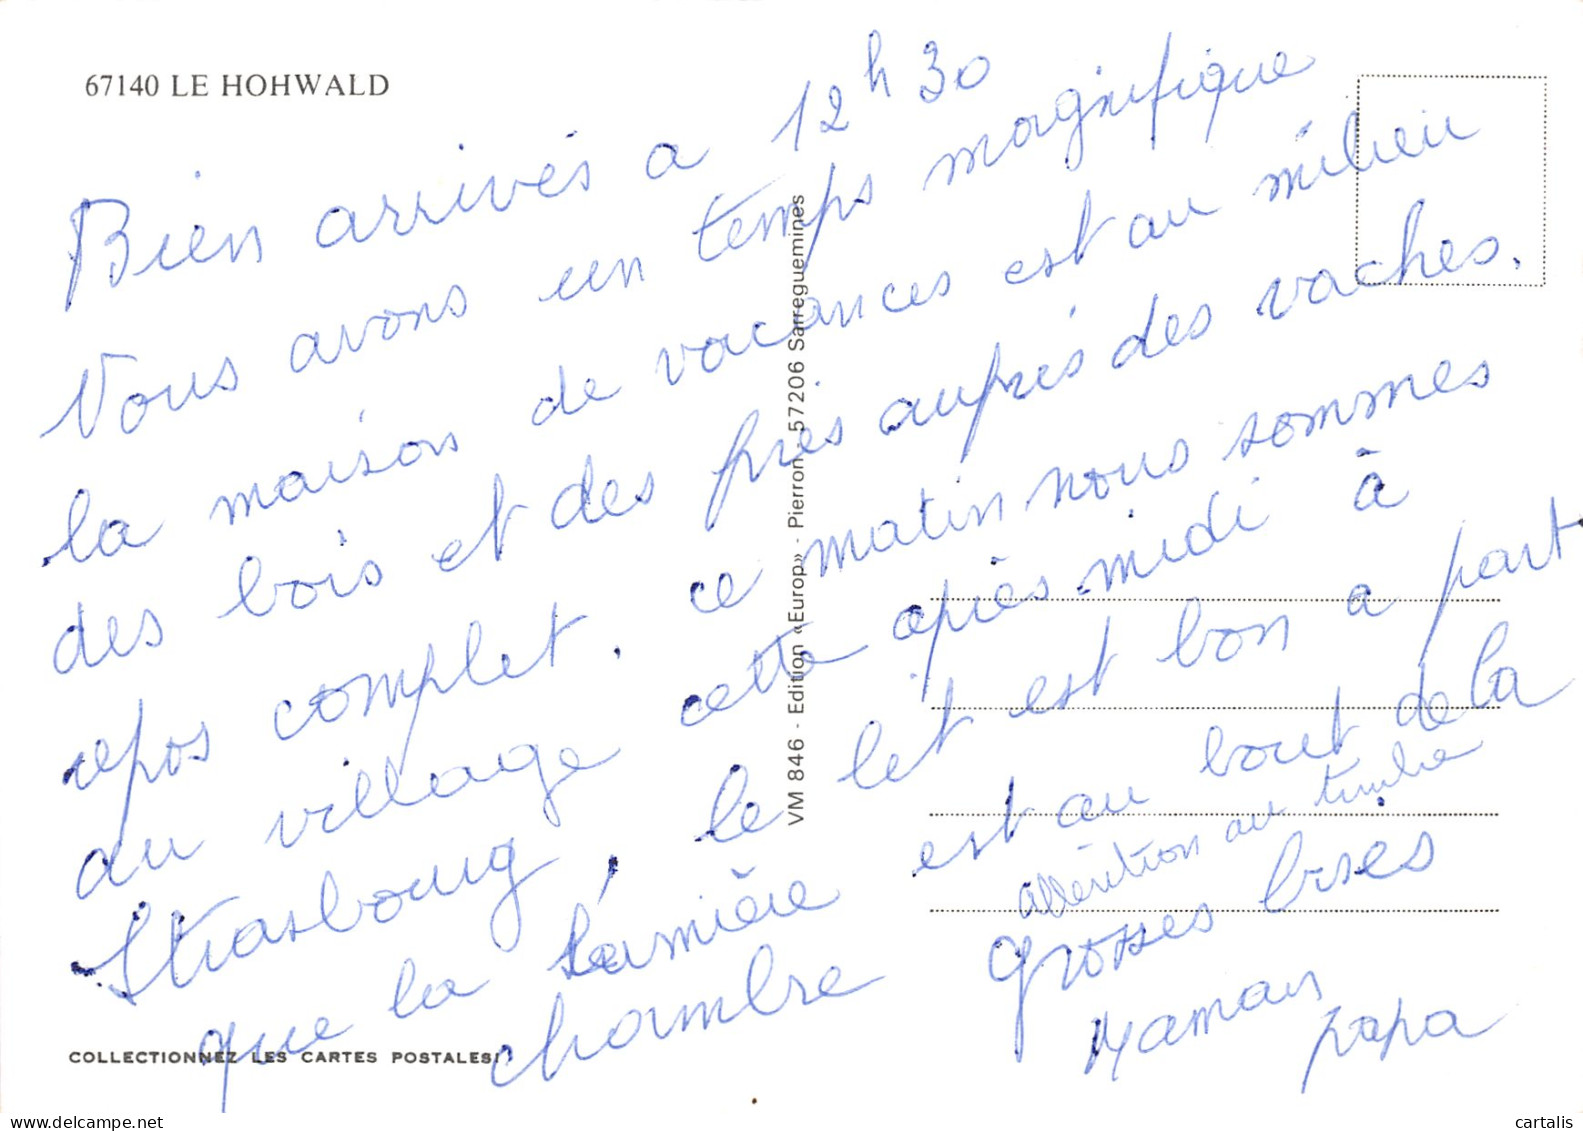 67140 LE HOHWALD
Bien arrivés a 12 h 30
Nous avons un temps magnifique
la maison de vacances est au milieu
des bois et des près auprés des vaches.
repos complet. ce matin nous sommes
au village cette après-midi à
Strasbourg, le let est bon a part
que la lumière est au bout de la
chambre
attention au timbre
Grosses bises
Maman
papa
VM 846 - Edition «Europ» - Pierron - 57206 Sarreguemines
COLLECTIONNEZ LES CARTES POSTALES!
delcampe.net
cartalis